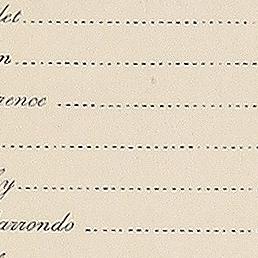 let
n
rence

y
arrondo